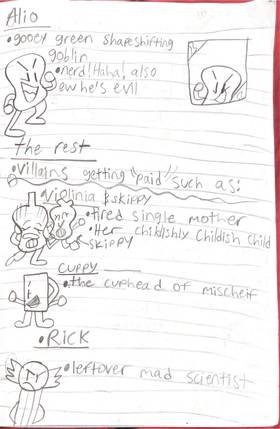 Alio
•gooey green shapeshifting
goblin
•nerd! Haha! also
ew he's evil
the rest
•Villains getting "paid" such as:
Violinia & SKiPPY
•tired single mother
•Her childishly childish child
SKiPPY
CUPPY
•the cuphead of mischeif
•RiCK
•leftover mad scientist